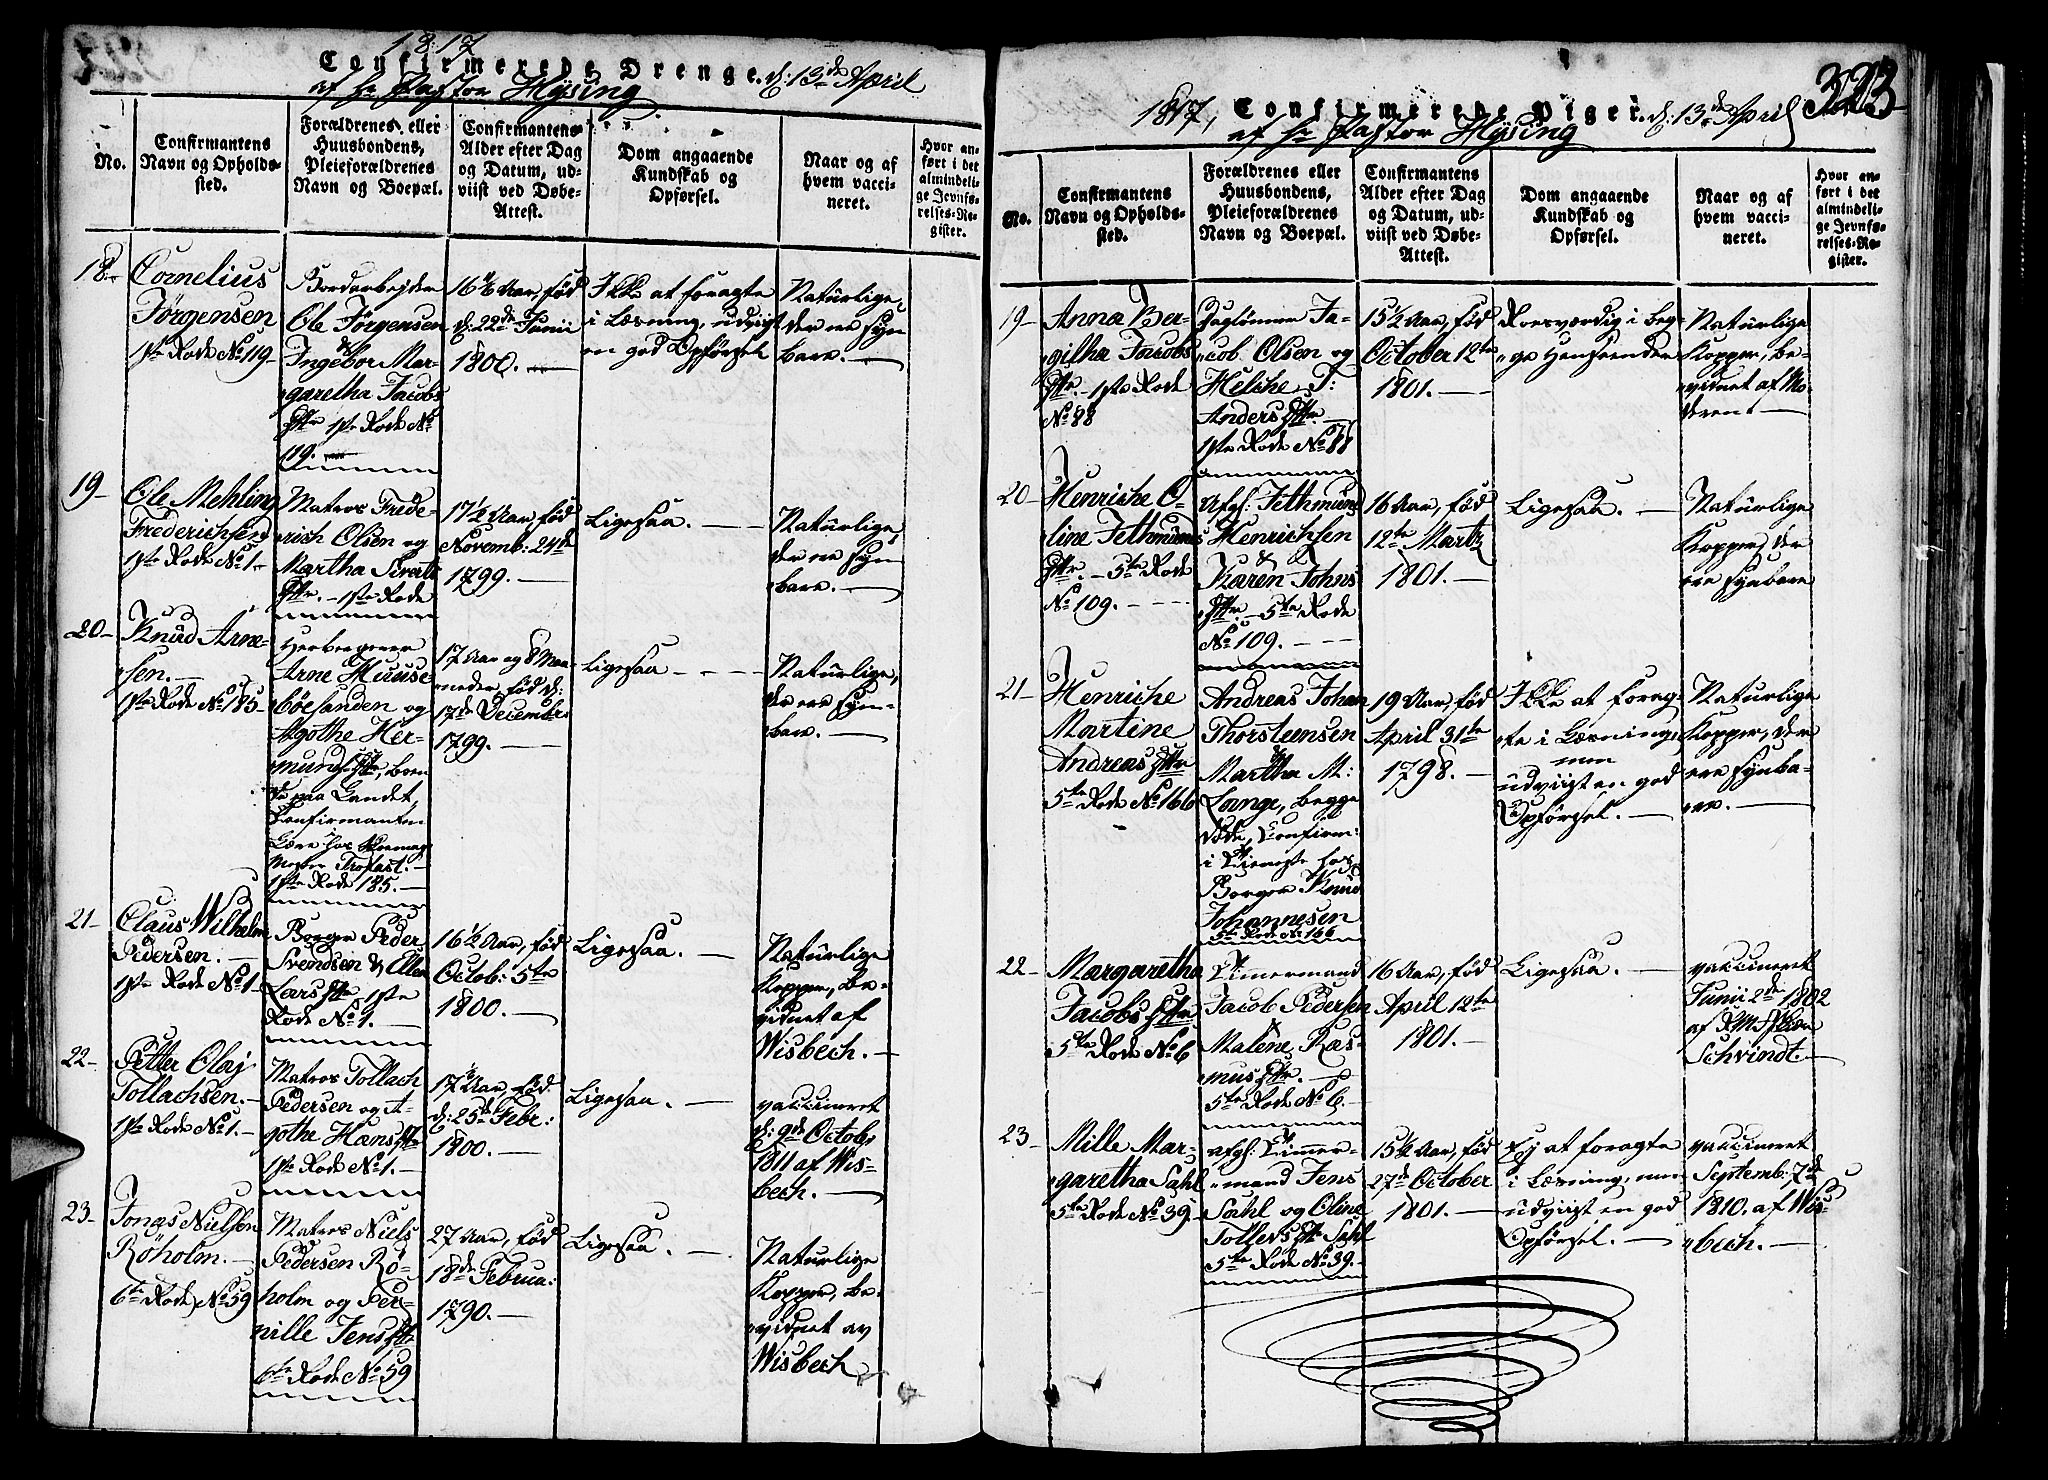 1817
Confirmerede Drenge. d: 13de April
af Hr Pastor Hysing
No.
Confirmantens
Navn og Opholds-
sted.
Forældrenes, eller
Huusbondens,
Pleieforældrenes
Navn og Boepæl.
Confirmantens
Alder efter Dag
og Datum, ud-
viist ved Døbe-
Attest.
Dom angaaende
Kundskab og
Opførsel.
Naar og af
hvem vacci-
neret.
Hvor an-
ført i det
almindeli-
ge Jevnfø-
relses-Re-
gister.
18-
Cornelius
Jørgensen
1ste Rode No 119-
Bordarbejder
Ole Jørgensen
&
Ingebor Mar-
garetha Jacobs
dttr 1ste Rode No
119.
16 1/6 Aar, fød
d: 22de Junii
1800. —
Ikke at foragte
i Læsning, udvigt
en god Opførsel
Naturlige,
der ere syn
bare. —
19-
Ole Mehling
Frederichsen
1ste Rode No 1.-
Matros Frede-
rich Olsen og
Martha Sivert
dttr. - 1ste Rode
17 1/2 Aar, fød
Novemb: 24de
1799. —
Ligesaa. —
Naturlige,
der ere syn
bare. —
20-
Knud Arne-
sen. —
1ste Rode No 185-
Herbergerer
Arne Huuse
bøelanden og
Agothe Her-
munds dttr, boen
de paa Landet,
Confirmanten
Lære hos Skomag
Mester Trofast. -
1ste Rode 185. —
17 Aar og 8 Maa-
neder, fød d:
17de Decembr:
1799. —
Ligesaa - - -
Naturlige,
der ere syn-
bare. —
21-
Claus Wilhelm
Pedersen. —
1ste Rode No 1-
Borger Peder
Svendsen & Ellen
Lars dttr 1ste
Rode No 1. —
16 1/2 Aar, fød
Octob: 5te
1800. —
Ligesaa. —
Naturlige
Kopper, be-
vidnet af
Wisbech. —
22-
Petter Olaj
Tollachsen. -
1ste Rode No 1. -
Matros Tollach
Pedersen og A-
gothe Hans dttr
1ste Rode No 1. -
17 Aar, fød
d: 25de Febr:
1800. —
Ligesaa. —
vaccineret
d: 9de Octob,
1811 af Wis-
bech. —
23-
Jonas Nielsen
Röholm. —
6te Rode No 59
Matros Niels
Pedersen Rö-
holm og Per-
nille Jens dttr
6te Rode No 59
27 Aar, fød
18de Februa:
1790. —
Ligesaa. —
Naturlige
Kopper, be-
vidnet av
Wisbech
323
1817, Confirmerede Piger. d: 13de April
af Hr Pastor Hysing
No.
Confirmantens
Navn og Opholds-
sted.
Forældrenes eller
Huusbondens,
Pleieforældrenes
Navn og Boepæl.
Confirmantens
Alder efter Dag
og Datum, ud-
viist ved Døbe-
Attest.
Dom angaaende
Kundskab og
Opførsel.
Naar og af
hvem vacci-
neret.
Hvor an-
ført i det
almindeli-
ge Jevnfø-
relses-Re-
gister.
19-
Anna Ber-
githa Jacobs
dttr. - 1ste Rode
No 88
Daglønner Ja-
cob Olsen og
Helche T:
Anders dttr. —
1ste Rode No 88
15 1/2 Aar, fød
October 12te
1801. —
Roesværdig i beg-
ge Henseender
Naturlige
Kopper, be-
vidnet af Mo-
deren. —
20-
Henriche O-
line Tethmunds
dttr. - 5te Rode
No 109. - - -
Afgl: Tethmund
Henrichsen
&
Karen Johns
dttr. - 5te Rode
No 109. - - -
16 Aar, fød
12te Marts
1801. —
Ligesaa. —
Naturlige
Kopper, der
ere synbare
21-
Henriche
Martine
Andreas dttr
5te Rode No 166
Andreas Johan
Thorsteensen
&
Martha M:
Lange, begge
døde, Confirm:
i Tieneste hos
Borger Knud
Johannesen
5te Rode No 166
19 Aar, fød
April 31te
1798. —
Ikke at forag-
te i Læsning,
men
udviigt en god
Opførsel. —
Naturlige
Kopper, der
ere synba-
re. —
22-
Margaretha
Jacobs dttr
5te Rode No 6
Timermand
Jacob Pedersen
&
Malene Ras-
mus dttr. —
5te Rode No 6. -
16 Aar, fød
April 12te
1801. —
Ligesaa. —
vaccineret
Junii 2de 1802
af
Schvindt. —
23-
Mille Mar-
garetha Sahl
5te Rode No 39-
afgl: Timer-
mand Jens
Sahl og Oline
Tollevs dttr Sahl
5te Rode No 39. -
15 1/2 Aar, fød
27de October
1801. —
Ej at foragte
i Læsning, men
udviigt en god
Opførsel. —
vaccineret
Septemb: 7de
1810. af Wis-
bech. —